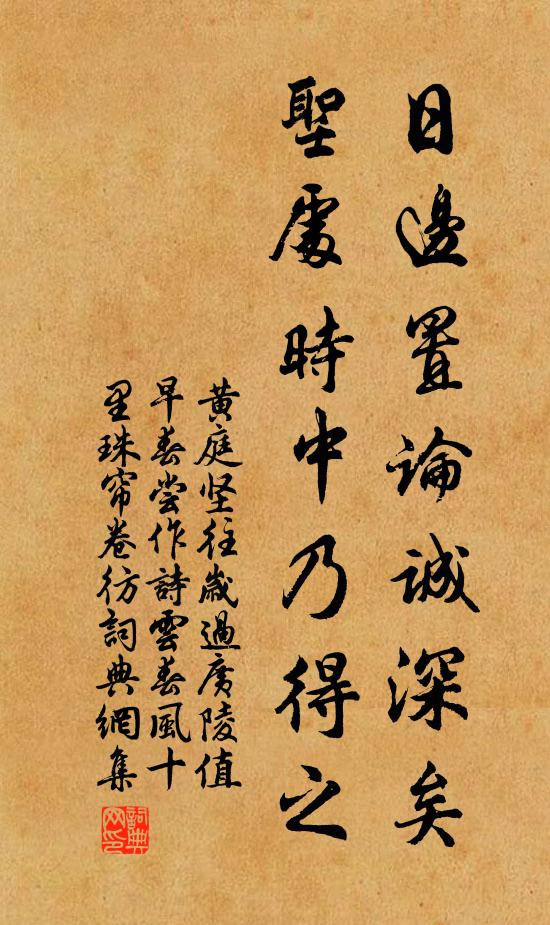 日邊置論誠深矣
聖處時中乃得之
黄庭坚往歲過廣陵值
早春嘗作詩雲春風十
里珠帘卷彷詞典網集
詞典
网印